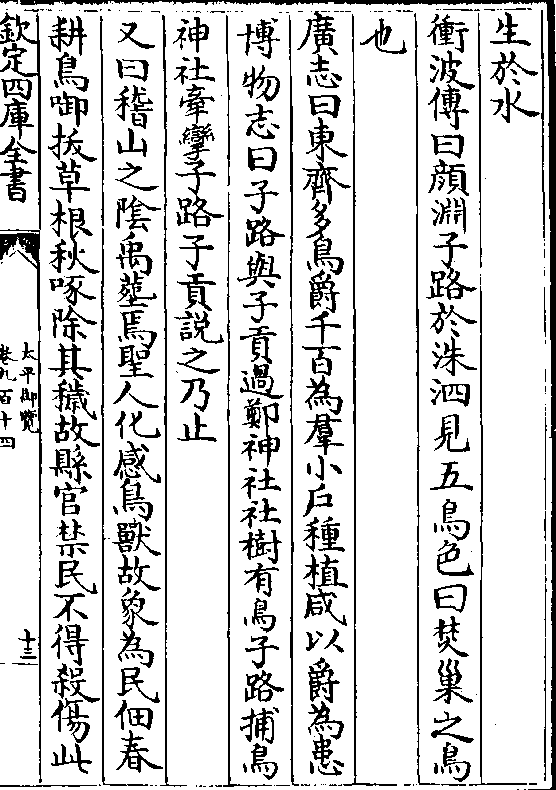 生於水
衝波傳曰顔淵子路於洙泗見五鳥色曰焚巢之鳥
也
廣志曰東齊多鳥爵千百為羣小戶種植咸以爵為患
博物志曰子路與子貢過鄭神社社樹有鳥子路捕鳥
神社牽攣子路子貢説之乃止
又曰稽山之陰禹塟焉聖人化感鳥獸故象為民佃春
耕鳥啣拔草根秋啄除其穢故縣官禁民不得殺傷此
欽定四庫全書
太平御覽
卷九百十四
十三